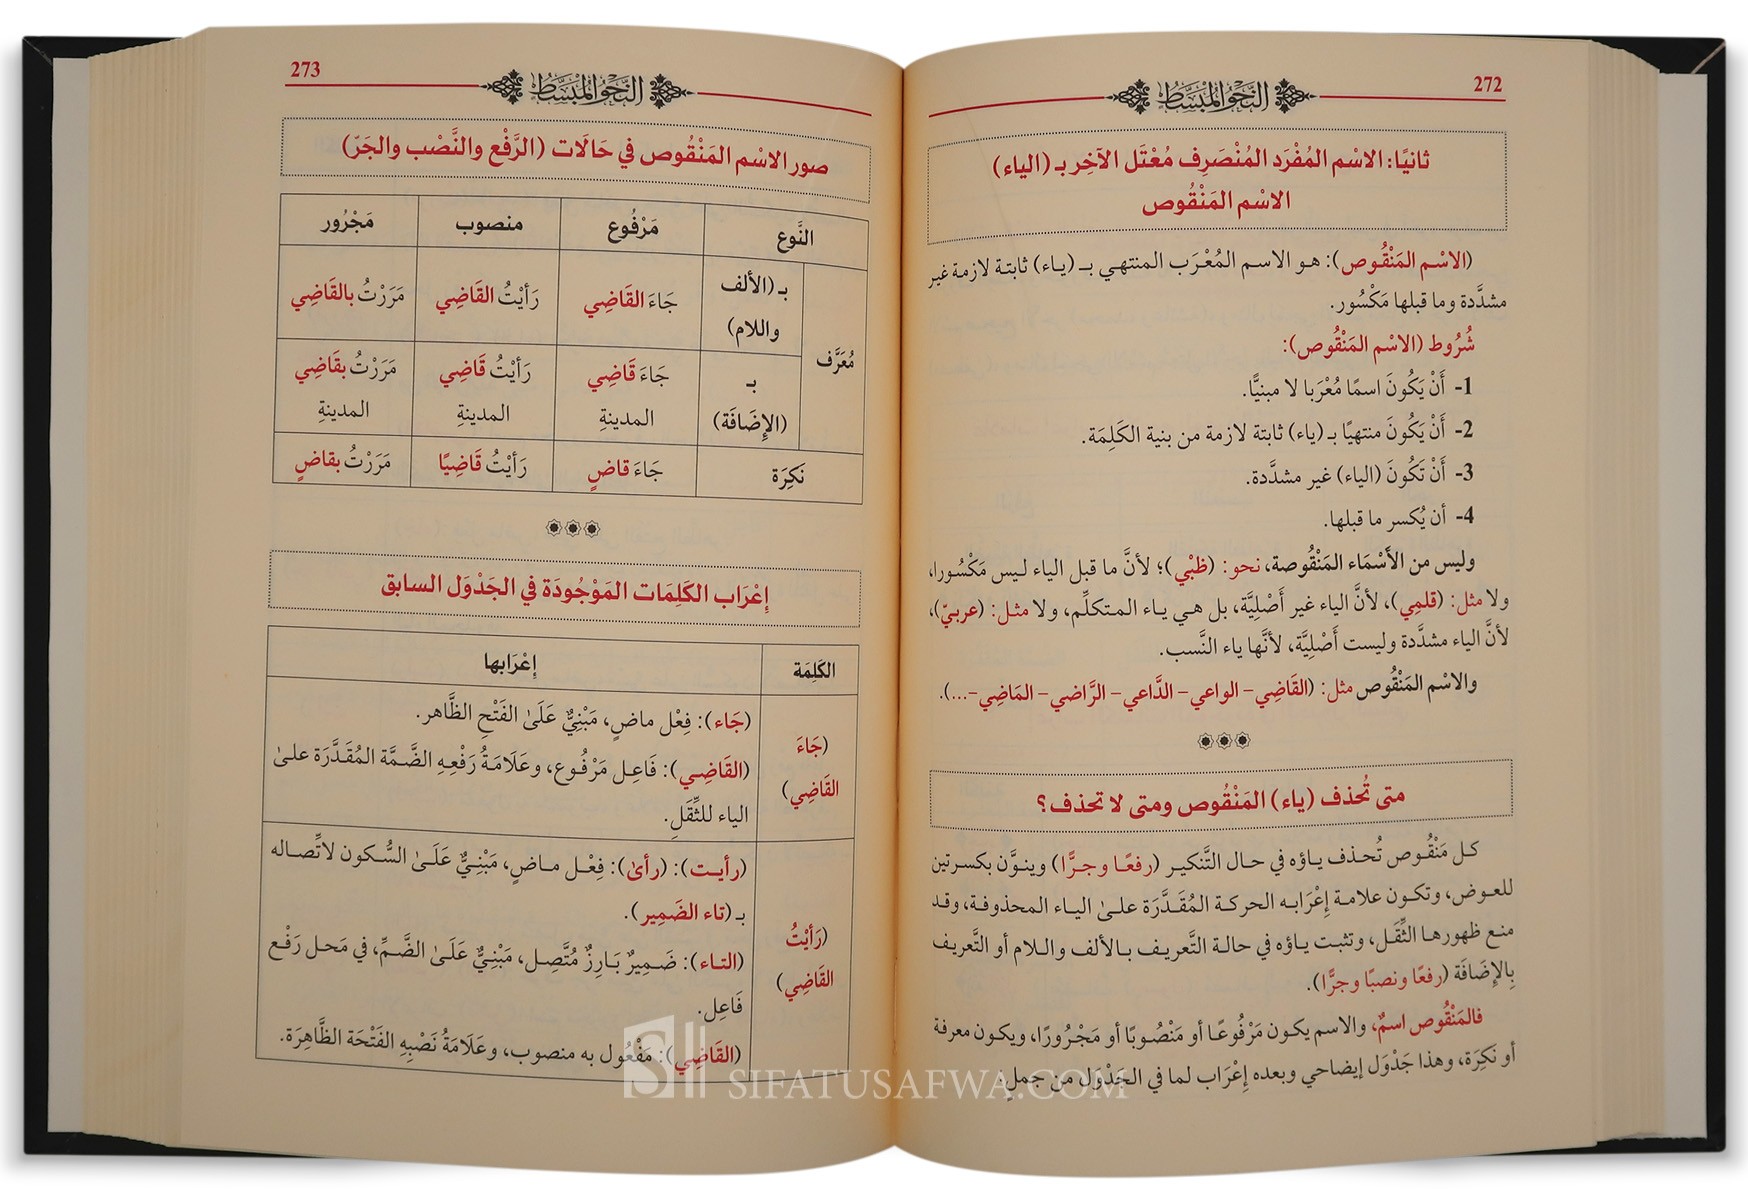 272
النَّحْوُ المُبَسَّطُ
ثانيًا: الاسْم المُفْرَد المُنْصَرِف مُعْتَل الآخِر بـ (الياء)
الاسْم المَنْقُوص
(الاسْم المَنْقُوص): هو الاسم المُعْرَب المنتهي بـ (ياء) ثابتة لازمة غير
مشدَّدة وما قبلها مَكْسُور.
شُرُوط (الاسْم المَنْقُوص):
1- أَنْ يَكُونَ اسمًا مُعْرَبا لا مبنيًّا.
2- أَنْ يَكُونَ منتهيًا بـ (ياء) ثابتة لازمة من بنية الكَلِمَة.
3- أَنْ تَكُونَ (الياء) غير مشدَّدة.
4- أن يُكسر ما قبلها.
وليس من الأَسْمَاء المَنْقُوصة، نحو: (ظبْي)؛ لأنَّ ما قبل الياء ليس مَكْسُورا،
ولا مثل: (قلمِي)، لأنَّ الياء غير أَصْلِيَّة، بل هي ياء المتكلِّم، ولا مثل: (عربيّ)،
لأنَّ الياء مشدَّدة وليست أَصْلِيَّة، لأنَّها ياء النَّسب.
والاسْم المَنْقُوص مثل: (القَاضِي- الواعي- الدَّاعي- الرَّاضي- المَاضِي-...).
متى تُحذف (ياء) المَنْقُوص ومتى لا تحذف؟
كل مَنْقُوص تُحذف ياؤه في حال التَّنكير (رفعًا وجرًّا) وينوَّن بكسرتين
للعوض، وتكون علامة إِعْرَابه الحركة المُقَدَّرَة علىٰ الياء المحذوفة، وقد
منع ظهورها الثِّقَل، وتثبت ياؤه في حالة التَّعريف بالألف واللام أو التَّعريف
بِالإضَافَة (رفعًا ونصبًا وجرًّا).
فالمَنْقُوص اسمٌ، والاسم يكون مَرْفُوعًا أو مَنْصُوبًا أو مَجْرُورًا، ويكون معرفة
أو نَكِرَة، وهذا جَدْوَل إيضاحي وبعده إِعْرَاب لما في الجَدْوَل من جملٍ.
273
النَّحْوُ المُبَسَّطُ
صور الاسْم المَنْقُوص في حَالَات (الرَّفْع والنَّصْب والجَرّ)
النَّوع مَرْفُوع منصوب مَجْرُور
مُعَرَّف بـ (الألف واللام) جَاءَ القَاضِي رَأيْتُ القَاضِي مَرَرْتُ بالقَاضِي
بـ (الإضَافَة) جَاءَ قَاضِي المدينةِ رَأيْتُ قَاضِي المدينةِ مَرَرْتُ بقَاضِي المدينةِ
نَكِرَة جَاءَ قاضٍ رَأيْتُ قَاضِيًا مَرَرْتُ بقاضٍ
إعْرَاب الكَلِمَات المَوْجُودَة في الجَدْوَل السابق
الكَلِمَة إعْرَابها
(جَاءَ القَاضِي)
(جَاء): فِعْل ماضٍ، مَبْنِيٌّ عَلَىٰ الفَتْحِ الظَّاهر.
(القَاضِي): فَاعِل مَرْفُوع، وعَلَامَةُ رَفْعِهِ الضَّمَّة المُقَدَّرَة علىٰ
الياء للثِّقَلِ.
(رَأيْتُ القَاضِي)
(رأيت): (رأىٰ): فِعْل ماضٍ، مَبْنِيٌّ عَلَىٰ السُّكون لاتِّصاله
بـ (تاء الضَمِير).
(التاء): ضَمِيرٌ بَارِزٌ مُتَّصِل، مَبْنِيٌّ عَلَىٰ الضَّمِّ، في مَحل رَفْع
فَاعِل.
(القَاضِي): مَفْعُول به منصوب، وعَلَامَةُ نَصْبِهِ الفَتْحَة الظَّاهِرَة.
SIFATUSAFWA.COM